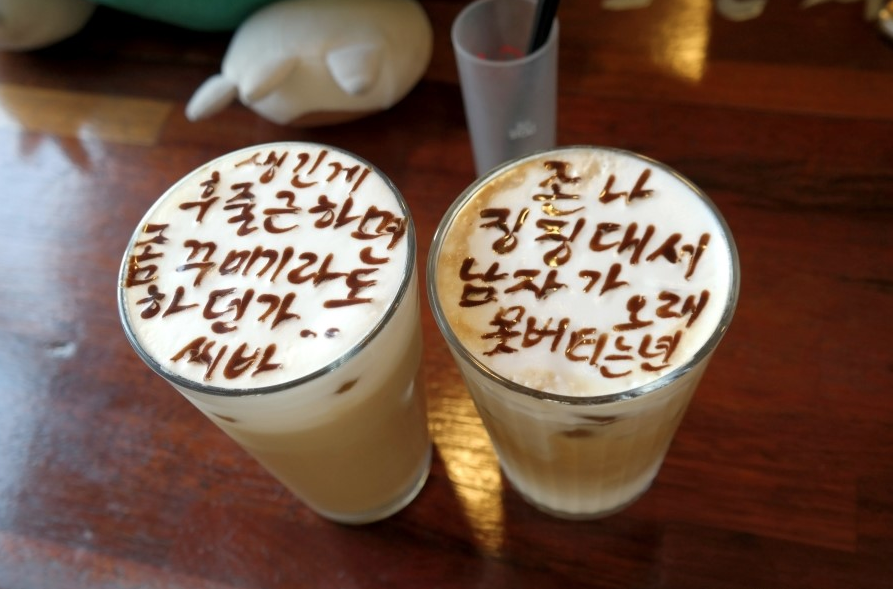 생긴게
후줄근하면
좀 꾸미기라도
하던가..
씨바
존나
징징대서
남자가 오래
못버티는년